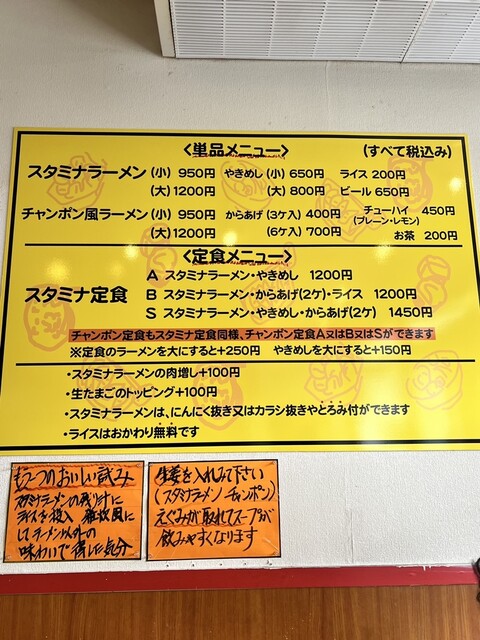 〈単品メニュー〉 (すべて税込み)
スタミナラーメン (小) 950円 やきめし (小) 650円 ライス 200円
(大) 1200円 (大) 800円 ビール 650円
チャンポン風ラーメン (小) 950円 からあげ (3ケ入) 400円 チューハイ 450円
(プレーン・レモン)
(大) 1200円 (6ケ入) 700円 お茶 200円
〈定食メニュー〉
スタミナ定食
A スタミナラーメン・やきめし 1200円
B スタミナラーメン・からあげ(2ケ)・ライス 1200円
S スタミナラーメン・やきめし・からあげ(2ケ) 1450円
チャンポン定食もスタミナ定食同様、チャンポン定食A又はB又はSができます
※定食のラーメンを大にすると+250円 やきめしを大にすると+150円
・スタミナラーメンの肉増し+100円
・生たまごのトッピング+100円
・スタミナラーメンは、にんにく抜き又はカラシ抜きやとろみ付ができます
・ライスはおかわり無料です
もう一つのおいしい試み
スタミナラーメンの残り汁に
ライスを投入 雑炊風に
してラーメン以外の
味わいで得した気分
生姜を入れみて下さい
(スタミナラーメン チャンポン)
えぐみが取れてスープが
飲みやすくなります